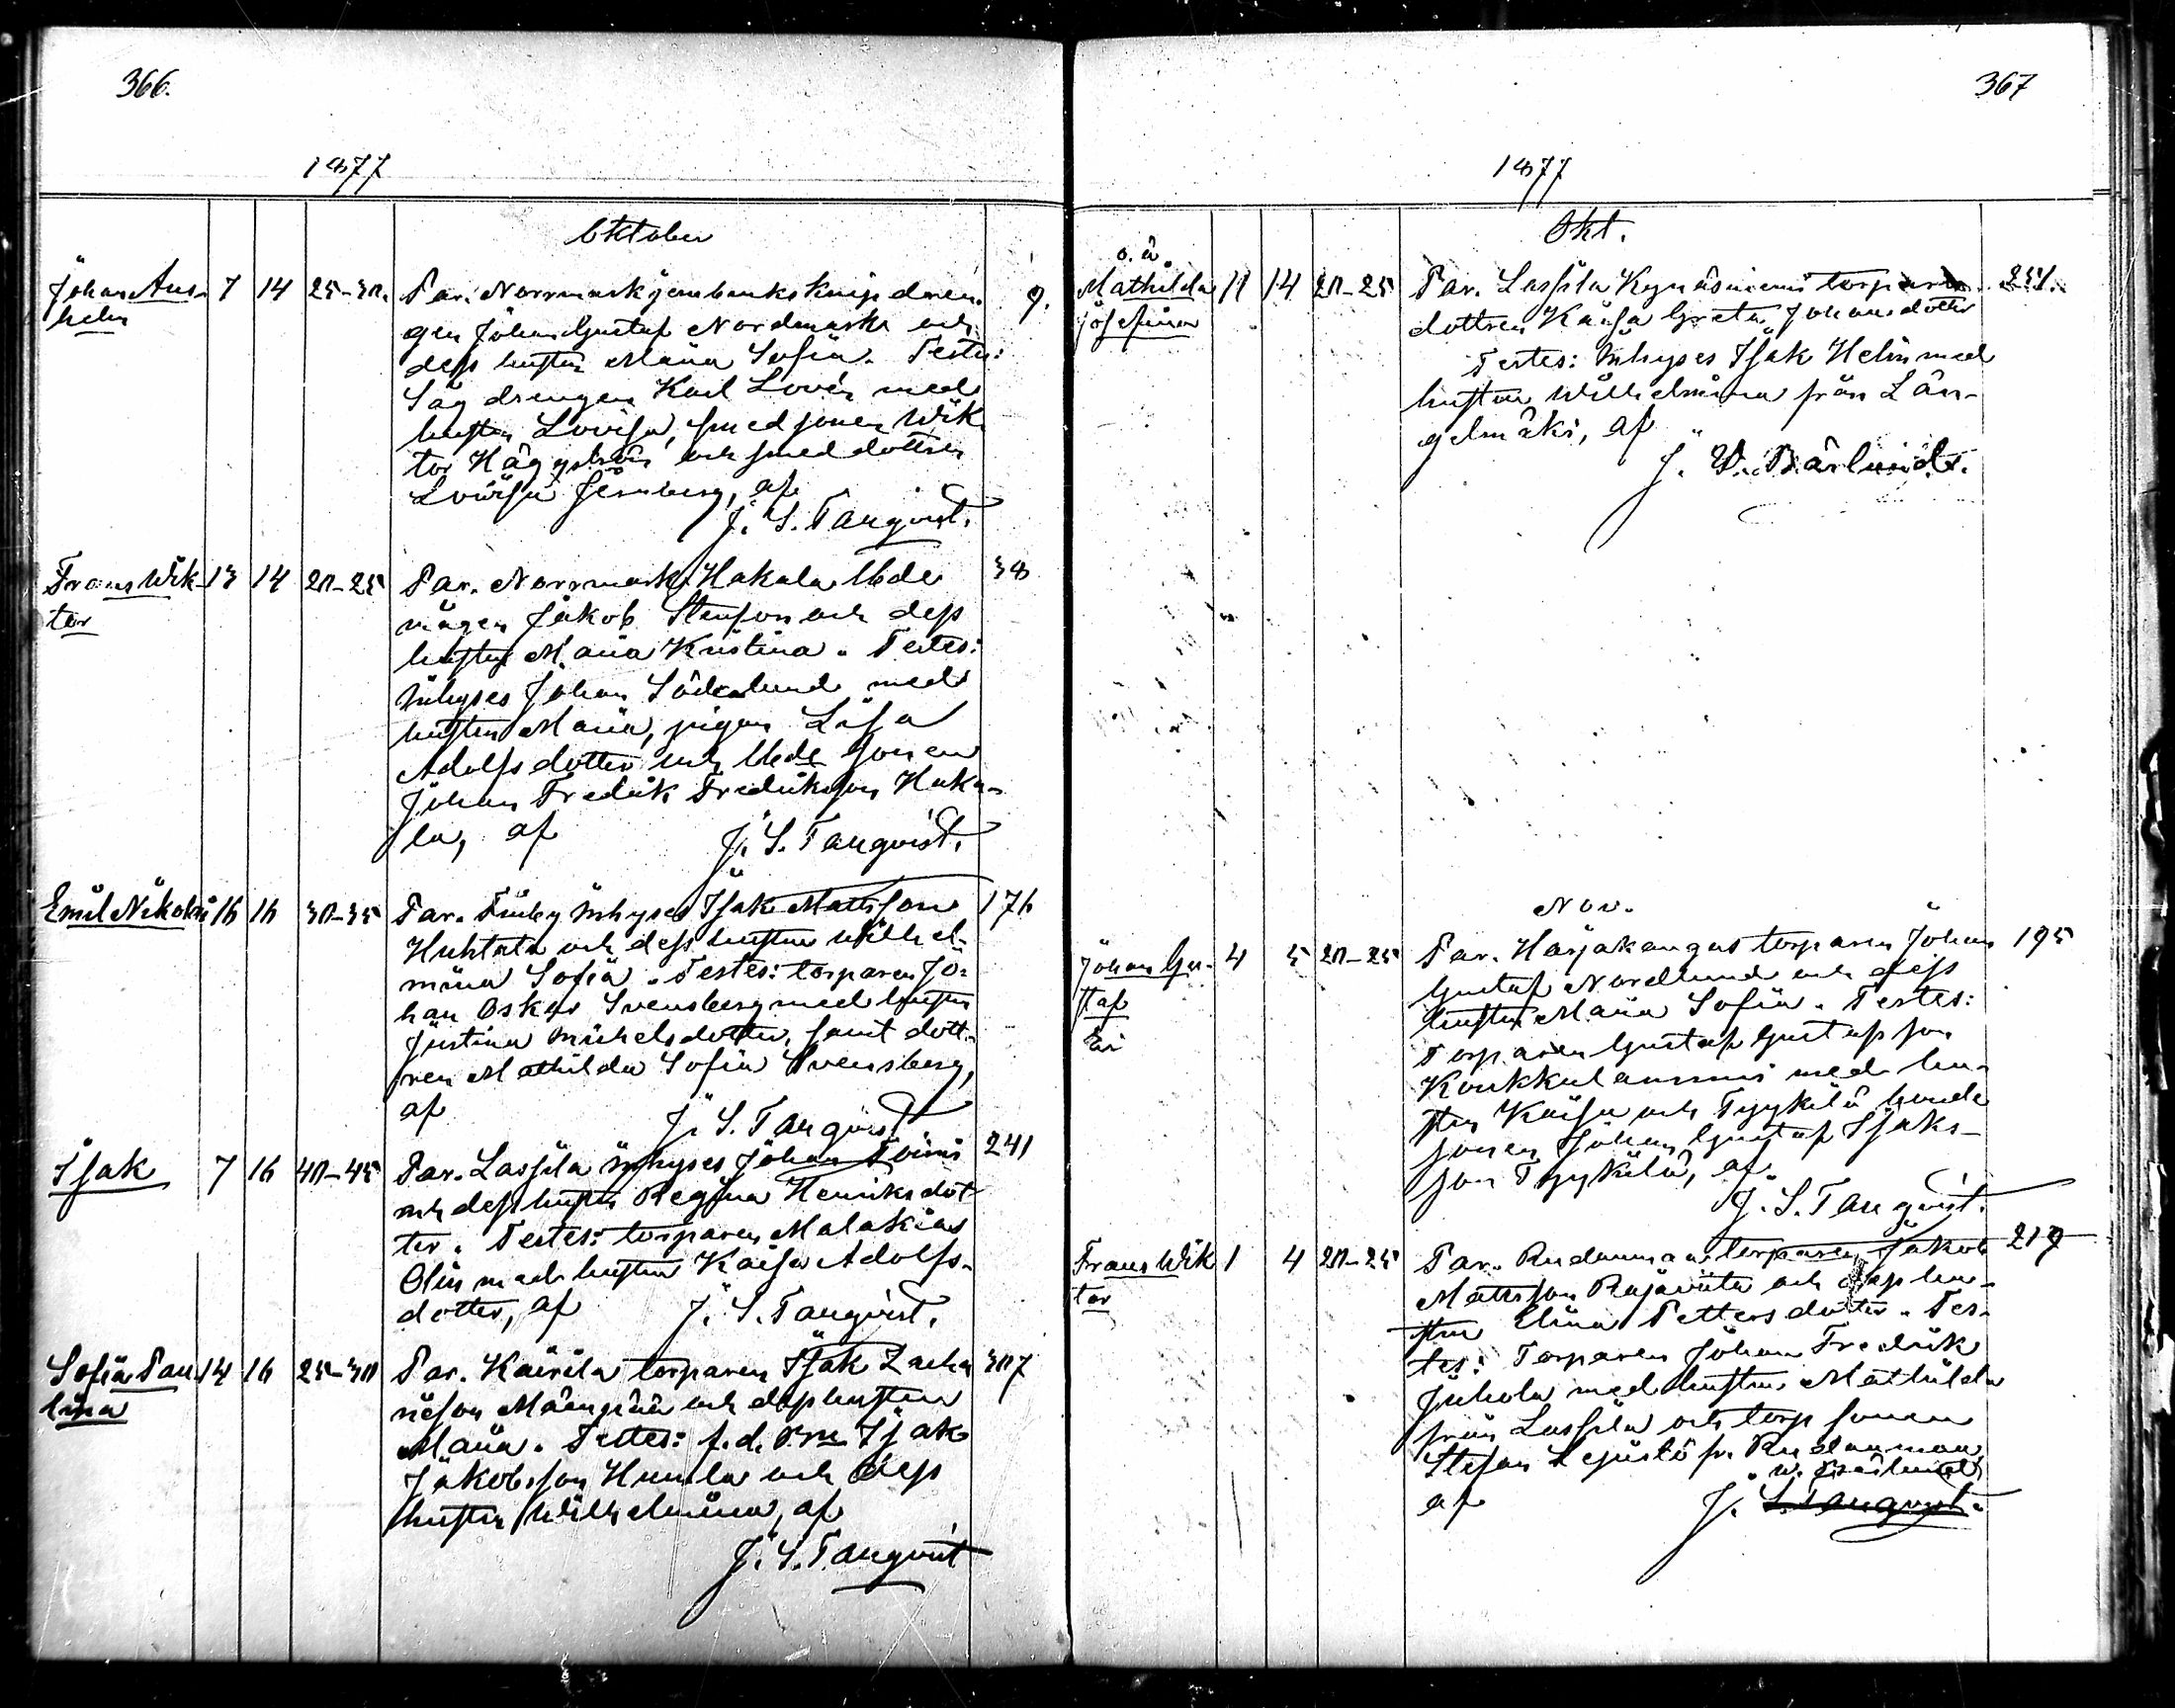 366.
1877
Oktober
Johan Ans- 7 14 25-30. Par. Norrmark jernbruks dren- 9.
helm gen Johan Gustaf Nordmark och
dess hustru Maria Sofia. Testes:
Såg drengen Karl Lovén med
hustru Lovisa, smedsonen Wik-
tor Häggström och smeddottren
Lovisa Jernberg, af
J. S. Tanqvist.
Frans Wik- 13 14 20-25 Par. Norrmark Hakala 38
tor mågen Jakob Stenson och dess
hustru Maria Kristina. Testes:
Inhyses Johan Söderlund med
hustru Maria, pigan Lisa
Adolfsdotter och sonen
Johan Fredrik Fredriksson Haka-
la, af J. S. Tanqvist.
Emil Nikolai 16 16 30-35 Par. Finby Inhyses Isak Mattsson 176
Huhtala och dess hustru Wilhel-
mina Sofia. Testes: torparen Jo-
han Oskar Svensberg med hustru
Justina Mikelsdotter, samt dott-
ren Mathilda Sofia Svensberg,
af J. S. Tanqvist
Isak 7 16 40-45 Par. Lassila Inhyses Johan Toivis 241
och dess hustru Regina Henriksdot-
ter. Testes: torparen Malakias
Olin med hustru Kaisa Adolfs-
dotter, af J. S. Tanqvist.
Sofia Pau- 14 16 25-30 Par. Kairila torparen Isak Zacha- 307
lina riesson Mäenpää och dess hustru
Maria. Testes: f.d. Isak
Jakobsson Humla och dess
hustru Wilhelmina, af
J. S. Tanqvist
367
1877
Okt.
o. ä.
Mathilda 11 14 20-25 Par. Lassila Kynäsniemi torpare 251.
Josefina dottren Kaisa Greta Johansdotter
Testes: Inhyses Isak Helin med
hustru Wilhelmina från Län-
gelmäki, af
J. W. Bärlund.
Nov.
Johan Gu- 4 5 20-25 Par. Harjakangas torparen Johan 195
staf Gustaf Nordlund och dess
hustru Maria Sofia. Testes:
Torparen Gustaf Gustafsson
med hu-
stru Kaisa och Tyykilä bonde
sonen Johan Gustaf Isaks-
son Tyykilä, af
J. S. Tanqvist.
Frans Wik 1 4 20-25 Par. Rudanmaa torparen Jakob 219
tor Mattsson Rajaviita och dess hu-
stru Elina Pettersdotter. Tes-
tes: Torparen Johan Fredrik
Juhola med hustru Mathilda
från Lassila och torp sonen
Stefan fr. Rudanmaa,
W. Bärlund
af J. S. Tanqvist.